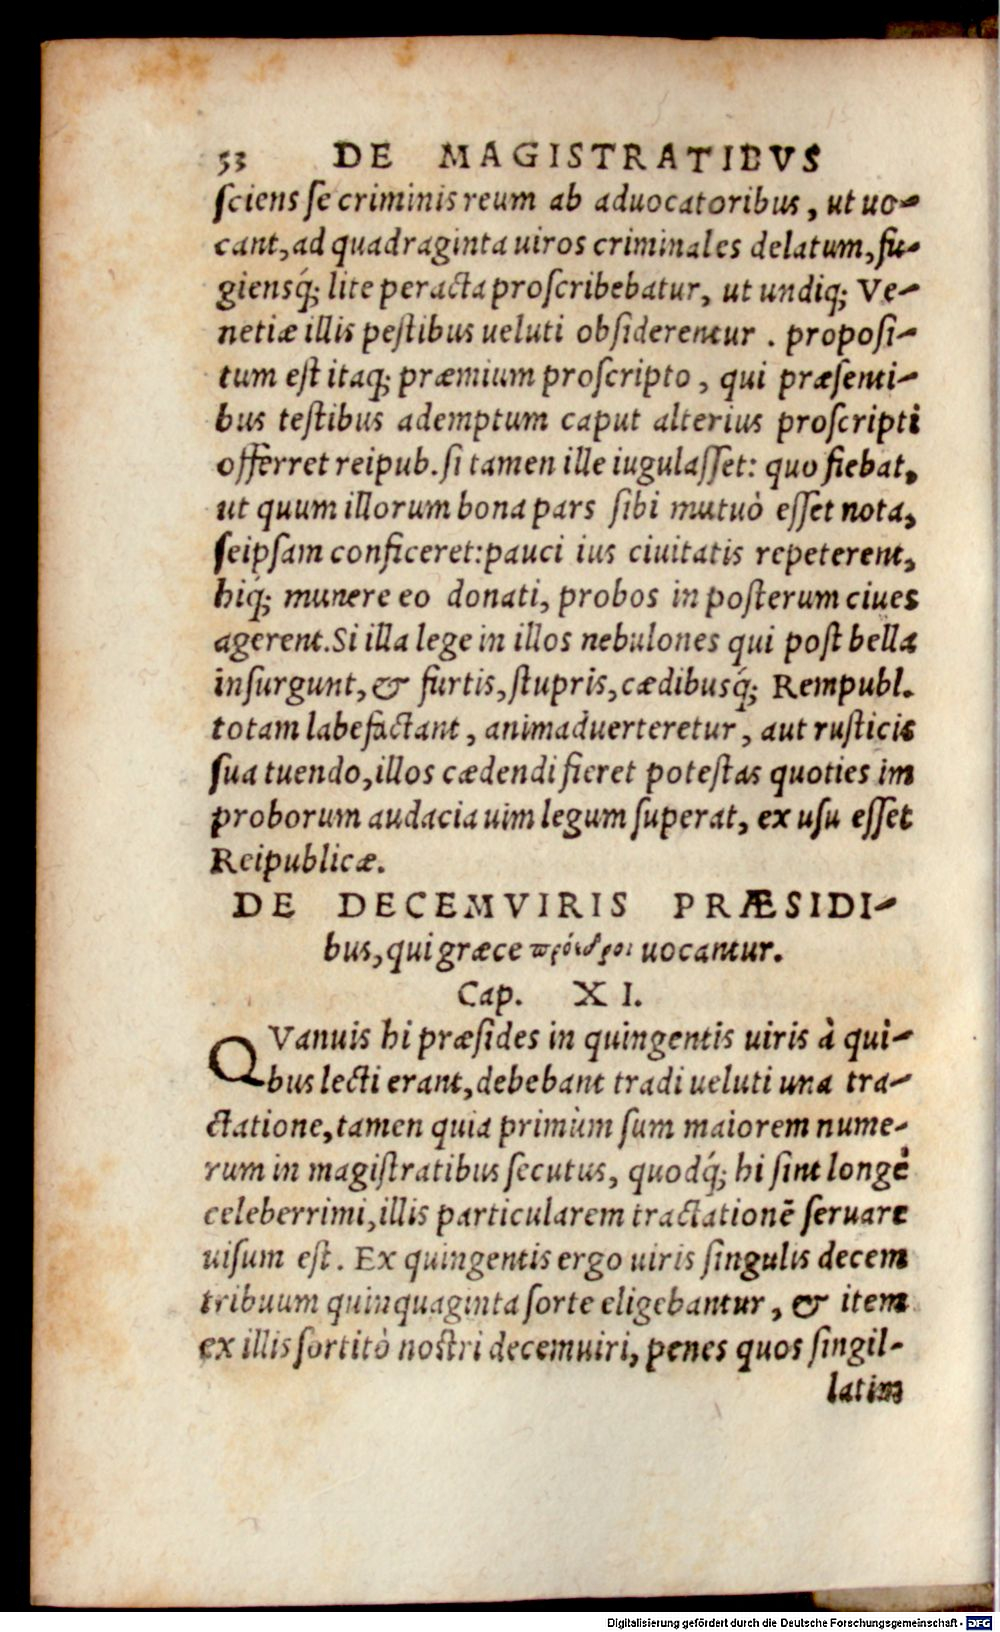 53 DE MAGISTRATIBVS
sciens se criminis reum ab aduocatoribus, ut uo-
cant, ad quadraginta uiros criminales delatum, fu-
giensq́; lite peracta proscribebatur, ut undiq; Ve-
netiæ illis pestibus ueluti obsiderentur. proposi-
tum est itaq; præmium proscripto, qui præsenti-
bus testibus ademptum caput alterius proscripti
offerret reipub. si tamen ille iugulasset: quo fiebat,
ut quum illorum bona pars sibi mutuò esset nota,
seipsam conficeret: pauci ius ciuitatis repeterent,
hiq́; munere eo donati, probos in posterum ciues
agerent. Si illa lege in illos nebulones qui post bella
insurgunt, & furtis, stupris, cædibusq́; Rempubl.
totam labefactant, animaduerteretur, aut rusticis
sua tuendo, illos cædendi fieret potestas quoties im
proborum audacia uim legum superat, ex usu esset
Reipublicæ.
DE DECEMVIRIS PRÆSIDI-
bus, qui græce πρόεδροι uocantur.
Cap. XI.
QVanuis hi præsides in quingentis uiris à qui-
bus lecti erant, debebant tradi ueluti una tra-
ctatione, tamen quia primùm sum maiorem nume-
rum in magistratibus secutus, quodq́; hi sint longè
celeberrimi, illis particularem tractationē seruare
uisum est. Ex quingentis ergo uiris singulis decem
tribuum quinquaginta sorte eligebantur, & item
ex illis sortitò nostri decemuiri, penes quos singil-
latim
Digitalisierung gefördert durch die Deutsche Forschungsgemeinschaft - DFG